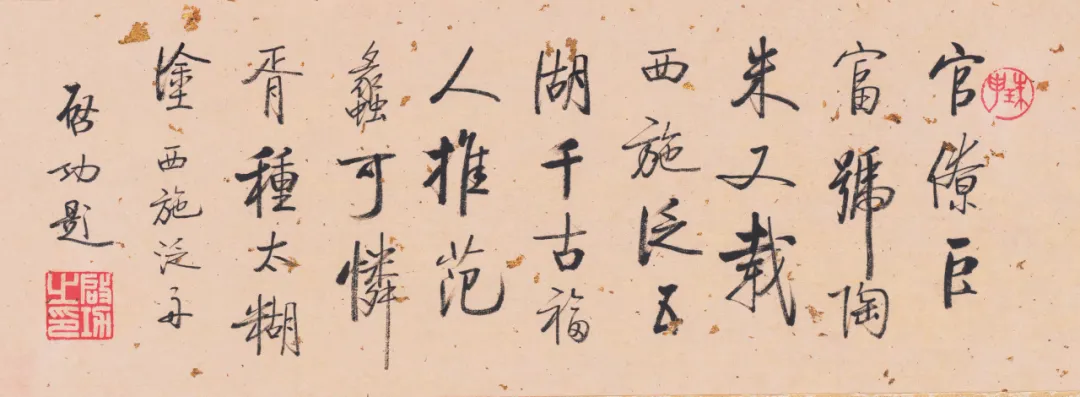 珠申
官僚巨
富號陶
朱又載
西施泛五
湖千古福
人推范
蠡可憐
胥種太糊
塗 西施泛舟
启功題
啟功之印